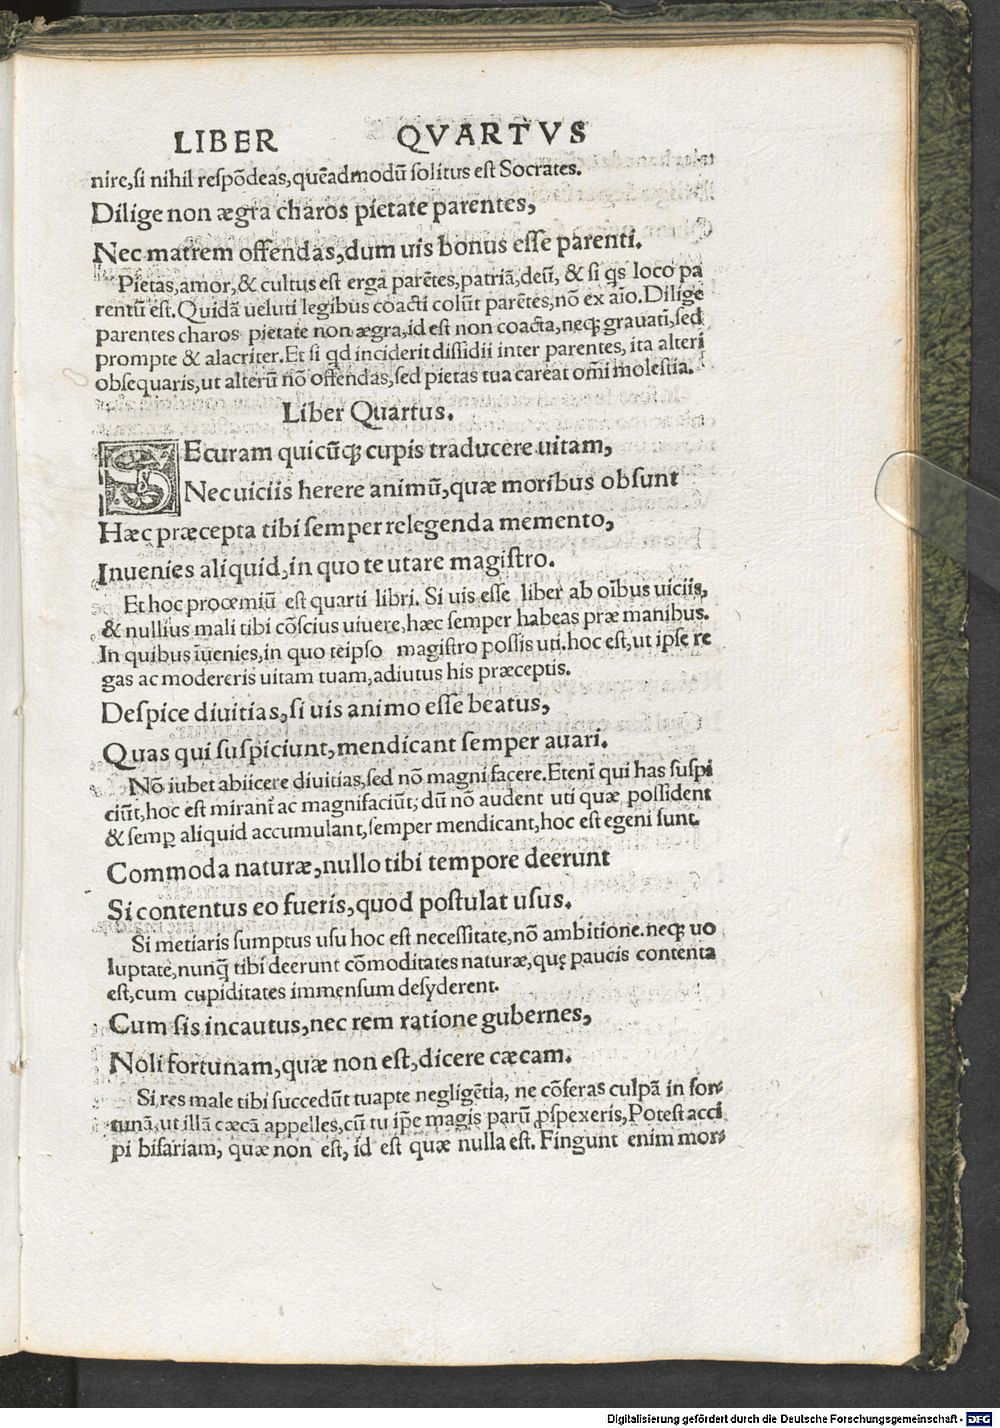 LIBER QVARTVS
nire,si nihil respõdeas,quẽadmodũ solitus est Socrates.
Dilige non ægra charos pietate parentes,
Nec matrem offendas,dum uis bonus esse parenti.
Pietas,amor,& cultus est erga parẽtes,patriã,deũ, & si qs loco pa
rentũ est.Quidã ueluti legibus coacti colũt parẽtes,nõ ex aĩo.Dilige
parentes charos pietate non ægra,id est non coacta,neqꝫ grauati,sed
prompte & alacriter.Et si qd inciderit dissidii inter parentes, ita alteri
obsequaris,ut alterũ nõ offendas,sed pietas tua careat omĩ molestia.
Liber Quartus.
SEcuram quicũqꝫ cupis traducere uitam,
Nec uiciis herere animũ,quæ moribus obsunt
Hæc præcepta tibi semper relegenda memento,
Inuenies aliquid,in quo te utare magistro.
Et hoc proœmiũ est quarti libri. Si uis esse liber ab oĩbus uiciis,
& nullius mali tibi cõscius uiuere,hæc semper habeas præ manibus.
In quibus ĩuenies,in quo teipso magistro possis uti.hoc est,ut ipse re
gas ac modereris uitam tuam,adiutus his præceptis.
Despice diuitias,si uis animo esse beatus,
Quas qui suspiciunt,mendicant semper auari.
Nõ iubet abiicere diuitias,sed nõ magni facere.Etenĩ qui has suspi
ciũt,hoc est mirant ac magnifaciũt; dũ nõ audent uti quæ possident
& semꝑ aliquid accumulant,semper mendicant,hoc est egeni sunt.
Commoda naturæ,nullo tibi tempore deerunt
Si contentus eo fueris,quod postulat usus.
Si metiaris sumptus usu hoc est necessitate,nõ ambitione.neqꝫ uo
luptate,nunq̃ tibi deerunt cõmoditates naturæ,quę paucis contenta
est,cum cupiditates immensum desyderent.
Cum sis incautus,nec rem ratione gubernes,
Noli fortunam,quæ non est,dicere cæcam.
Si res male tibi succedũt tuapte negligẽtia, ne cõferas culpã in for⸗
tunã,ut illã cæcã appelles,cũ tu ip̃e magis parũ ꝓspexeris,Potest acci
pi bifariam, quæ non est, id est quæ nulla est. Fingunt enim mor⸗
Digitalisierung gefördert durch die Deutsche Forschungsgemeinschaft - DFG